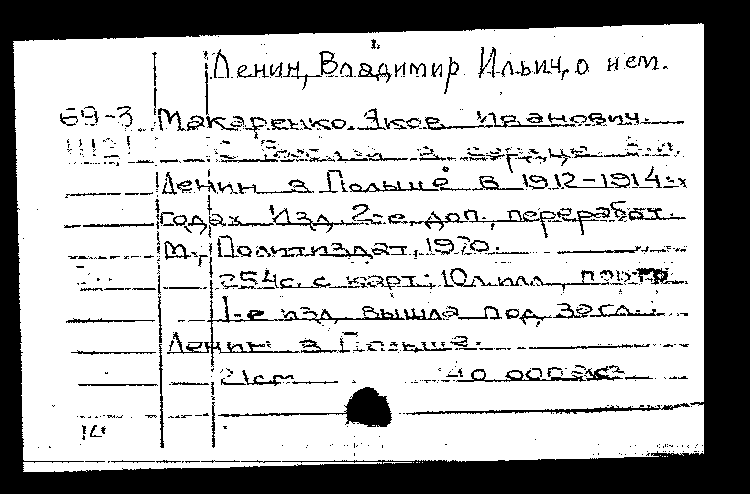 Ленин, Владимир Ильич, о нем.
69-3 Макаренко, Яков Иванович.
С Россией в сердце В.И.
Ленин в Польше в 1912-1914-х
годах Изд. 2-е, доп., переработ.
М., Политиздат, 1970.
254с. с карт.; 10л.илл., портр
1-е изд. вышла под загл.:
Ленин в Польше.
21см 40 000экз